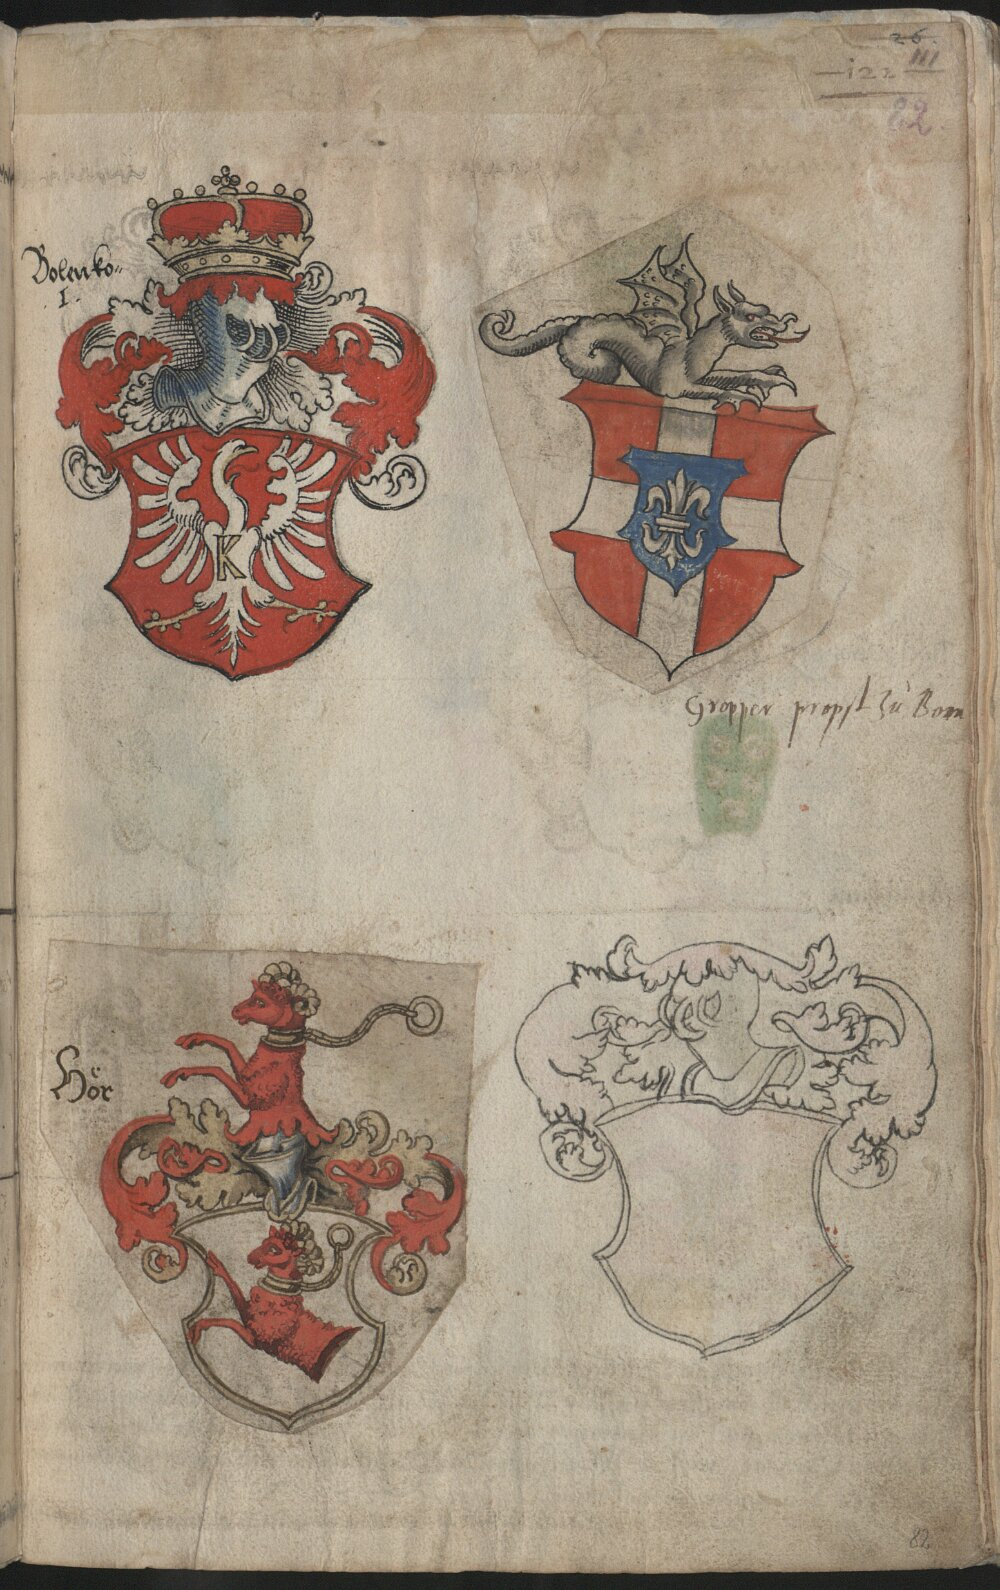 26.
III
i22
82.
Bolenko-
I.
K
Gropper propst zů Bonn
Hör
82